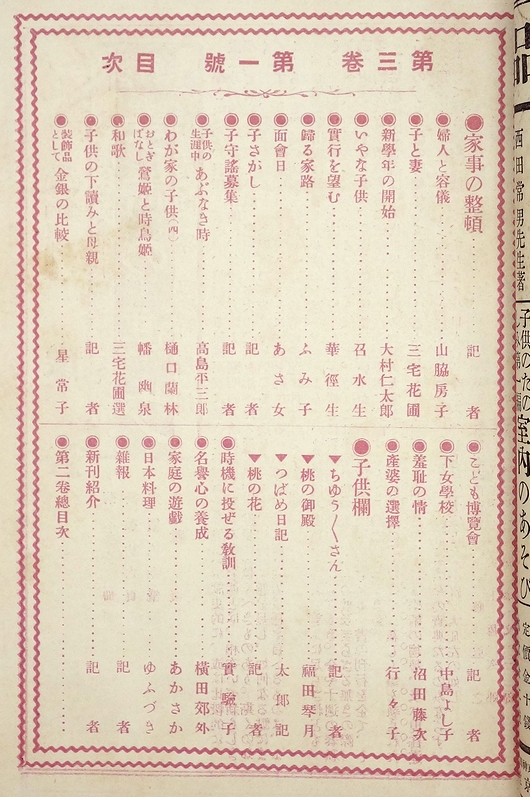 第三卷　第一號　目次
●家事の整頓　記者
●婦人と容儀　山脇房子
●子と妻　三宅花圃
●新學年の開始　大村仁太郎
●いやな子供　召水生
●實行を望む　華徑生
●歸る家路　ふみ子
●面會日　あさ女
●子さがし　記者
●子守謠募集　記者
●子供の生涯中あぶなき時　高島平三郎
●わが家の子供（四）　樋口蘭林
●おとぎばなし鶯姬と時鳥姬　幡幽泉
●和歌　三宅花圃選
●子供の下讀みと母親　記者
●裝飾品として金銀の比較　星常子
●こども博覽會　記者
●下女學校　中島よし子
●羞恥の情　沼田藤次
●產婆の選擇　行々子
●子供欄
▼ちゆう〳〵さん　記者
▼桃の御殿　福田琴月
▼つばめ日記　太郞記
▼桃の花　記者
●時機に投ぜる敎訓　實驗子
●名譽心の養成　橫田郊外
●家庭の遊戲　あかさか
●日本料理　ゆふづき
●雜報　記者
●新刊紹介　記者
●第二卷總目次
西田常男先生著
子供のための室內のあそび